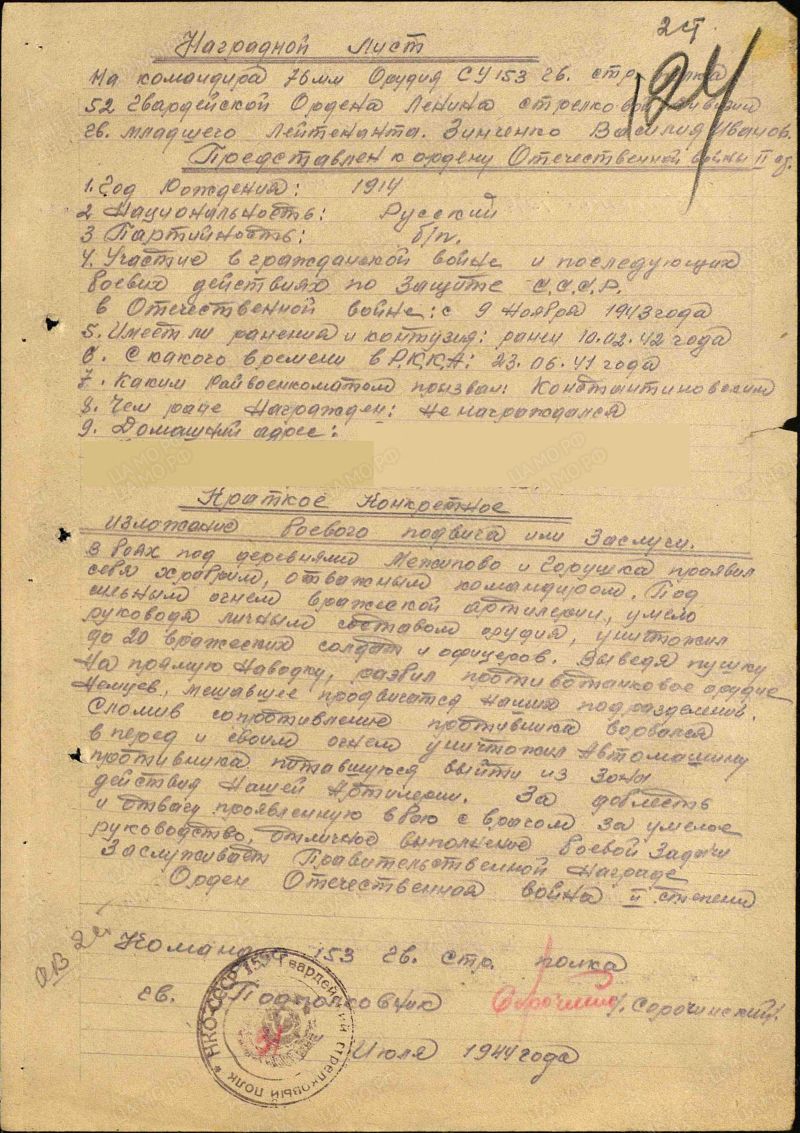 2 СТ.
124
Наградной Лист
На командира 76мм Орудия СУ 153 гв. стр. полка
52 Гвардейской Ордена Ленина стрелковой дивизии
гв. младшего Лейтенанта. Зинченко Василия Иванов.
Представлен к ордену Отечественной войны II ст.
1. Год Рождения: 1914
2 Национальность: Русский
3 Партийность: б/п.
4. Участие в гражданской войне и последующих
боевих действиях по Защите С.С.С.Р.
в Отечественной войне: с 9 Ноября 1943 года
5. Имеет ли ранения и контузия: ранен 10.02.42 года
6. С какого времени в Р.К.К.А: 23.06.41 года
7. Каким Райвоенкоматом призван: Константиновским
8. Чем ране Награжден: Не награждался
9. Домашний адрес:
Краткое Конкретное
изложение боевого подвига или Заслуги.
В боях под деревнями Межипово и Горушка проявил
себя храбрим, отважным командиром. Под
сильным огнем вражеской артилерии, умело
руководя личным составом орудия, уничтожил
до 20 вражеских солдат и офицеров. Выведя пушку
На прямую Наводку, разбил противотанковое орудие
Немцев, мешавшее продвигатся нашим подразделений.
Сломив сопротивление противника ворвался
в перед и своим огнем уничтожил Автомашину
противника питавшуюся выйти из Зоны
действия Нашей Артилерии. За доблесть
и отвагу проявленную в бою с врагом За умелое
руководство, отличное выполнение боевой Задачи
Заслуживает Правительственной Награде
Орден Отечественной война II степени
Команд. 153 гв. стр. полка
гв. Подполковник Сорочинский
Июля 1944 года
НКО-СССР 153 Гвардейский стрелковый полк
ЦАМО.РФ